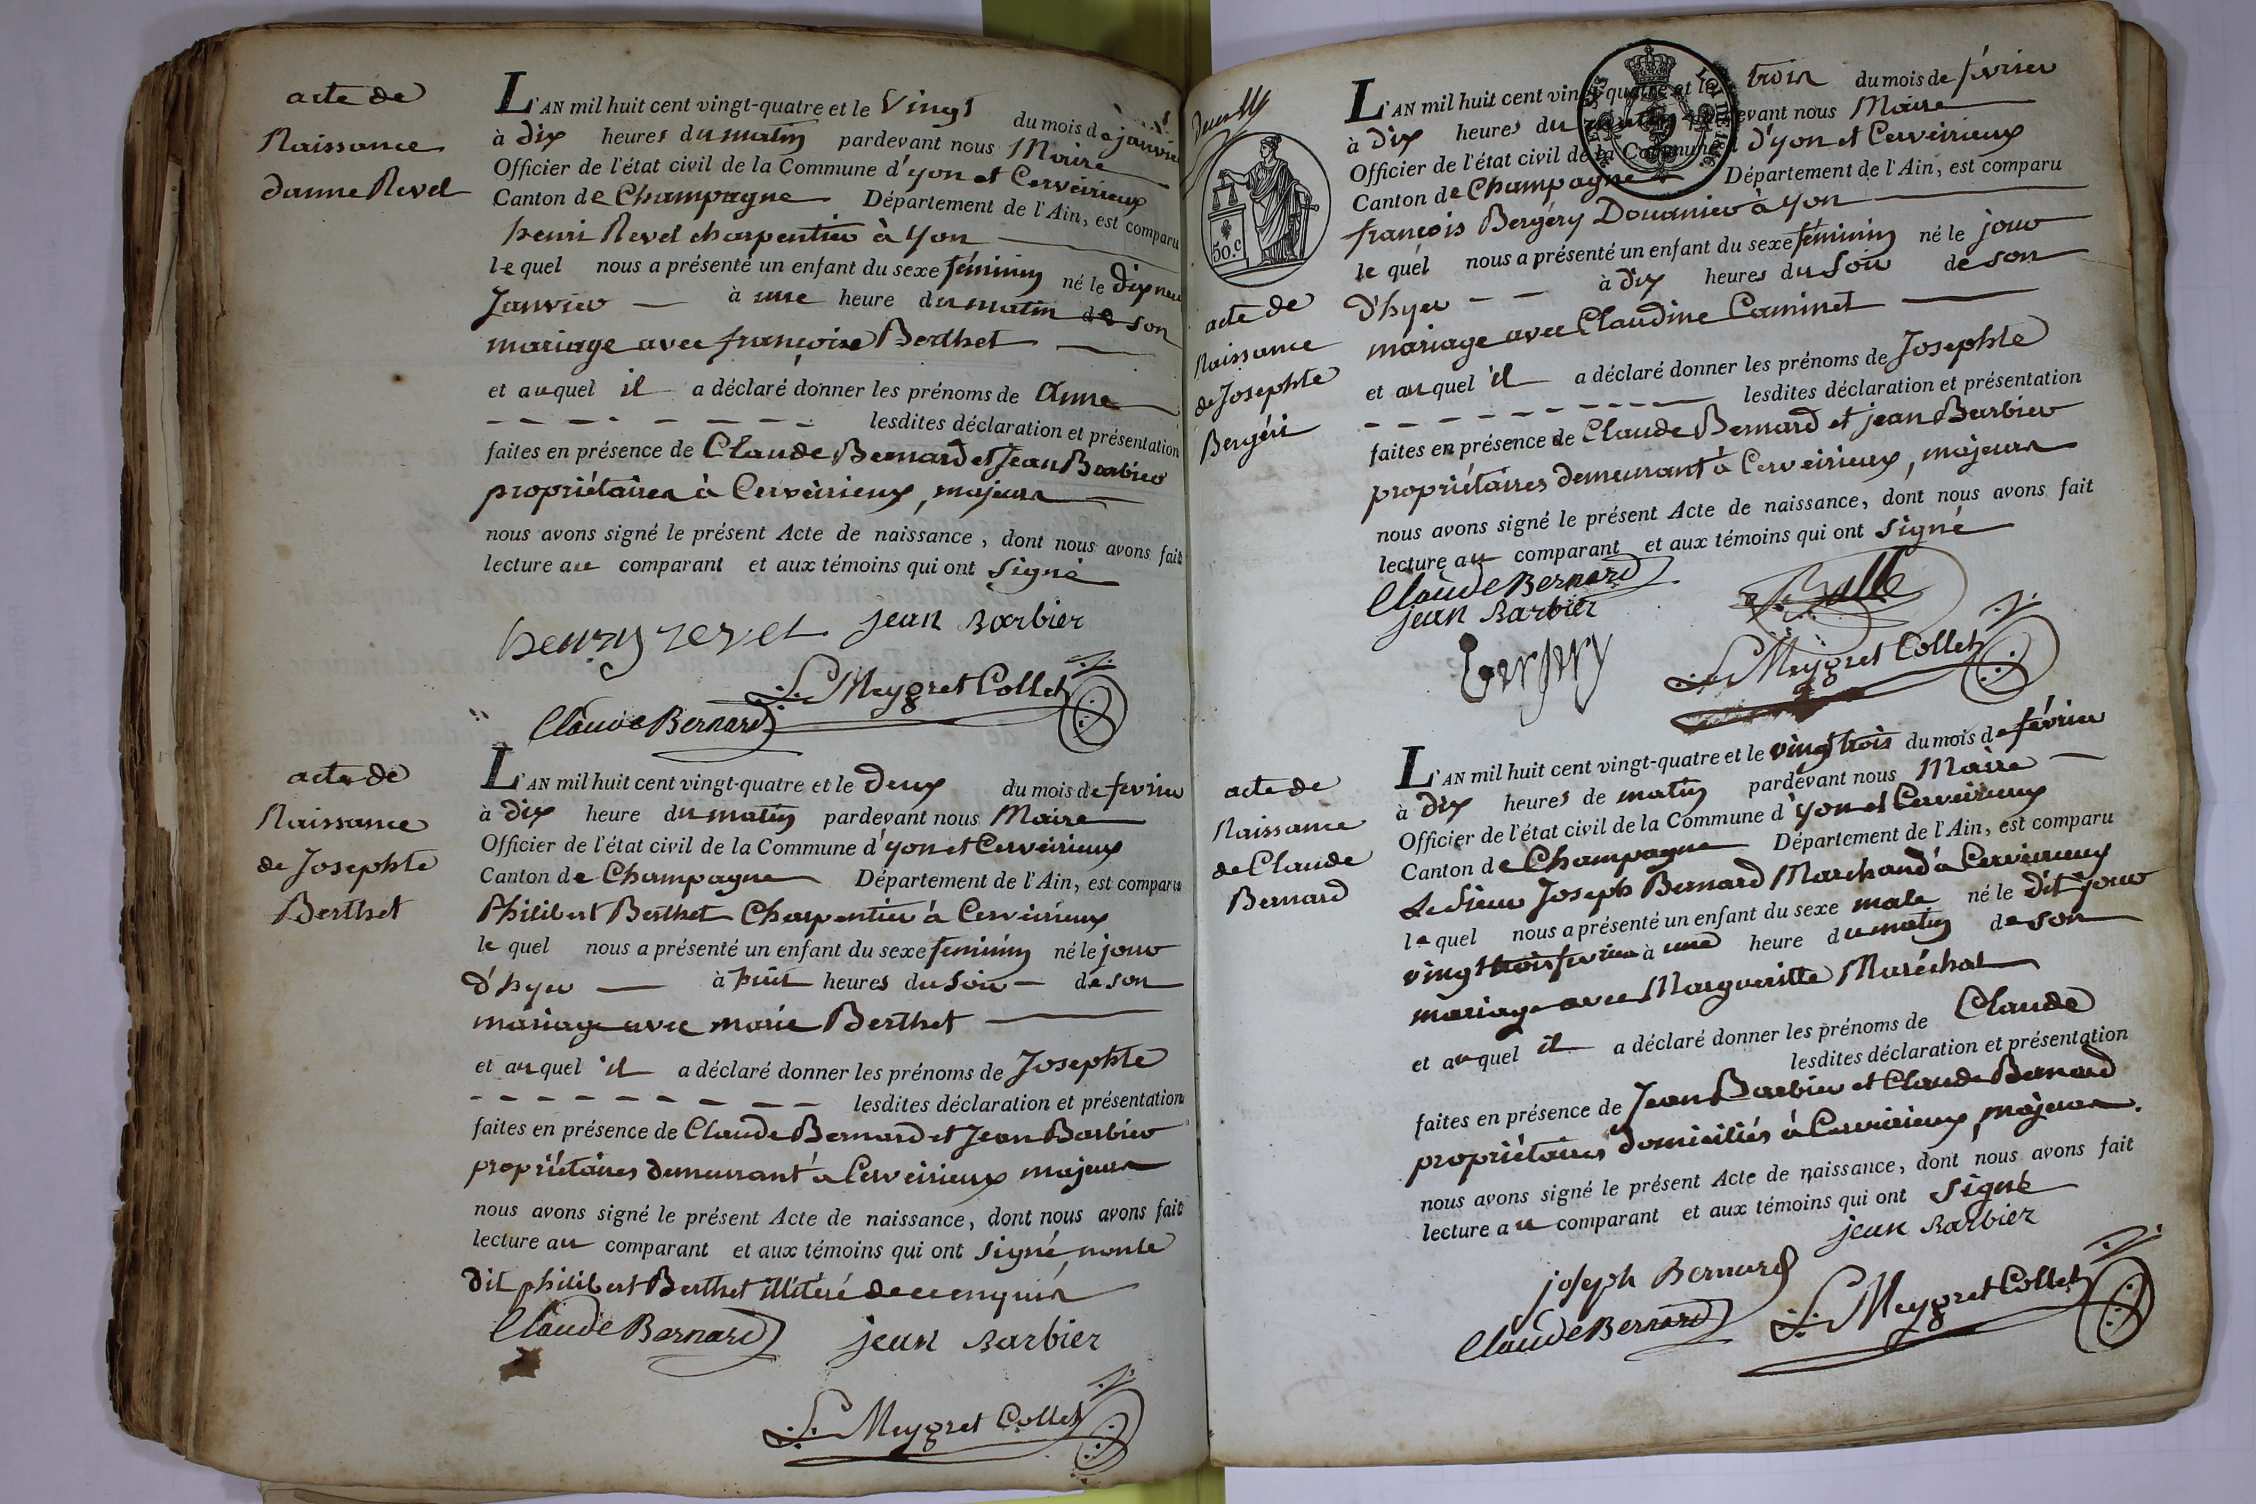 acte de
Naissance
danne Revel
L'AN mil huit cent vingt-quatre et le Vingt du mois de janvier
à dix heures du matin pardevant nous Maire
Officier de l'état civil de la Commune d'yon et Cerveirieux
Canton de Champagne Département de l'Ain, est comparu
henri Revel charpentier à yon
lequel nous a présenté un enfant du sexe féminin né le dix neuf
Janvier à une heure du matin de son
mariage avec françoise Berthet
et auquel il a déclaré donner les prénoms de Anne
lesdites déclaration et présentation
faites en présence de Claude Bernard et Jean Barbier
propriétaires à Cerveirieux, majeurs
nous avons signé le présent Acte de naissance, dont nous avons fait
lecture au comparant et aux témoins qui ont signé
henry revel jean Barbier
L. Meygret Collet
Claude Bernard
acte de
Naissance
de Josephte
Berthet
L'AN mil huit cent vingt-quatre et le deux du mois de fevrier
à dix heure du matin pardevant nous Maire
Officier de l'état civil de la Commune d'yon et Cerveirieux
Canton de Champagne Département de l'Ain, est comparu
Philibert Berthet Charpentier à Cerveirieux
lequel nous a présenté un enfant du sexe feminin né le jour
d'hyer à huit heures du soir de son
mariage avec marie Berthet
et auquel il a déclaré donner les prénoms de Josephte
lesdites déclaration et présentation
faites en présence de Claude Bernard et Jean Barbier
propriétaires demeurant à Cerveirieux majeurs
nous avons signé le présent Acte de naissance, dont nous avons fait
lecture au comparant et aux témoins qui ont signé, non le
dit philibert Berthet illitéré de ce enquis
Claude Bernard jean Barbier
L. Meygret Collet
50.c
acte de
Naissance
de Josephte
Bergéri
L'AN mil huit cent vingt-quatre et le trois du mois de février
à dix heures du matin pardevant nous Maire
Officier de l'état civil de la Commune d'yon et Cerveirieux
Canton de Champagne Département de l'Ain, est comparu
françois Bergéry Douanier à yon
lequel nous a présenté un enfant du sexe féminin né le jour
d'hyer à dix heures du soir de son
mariage avec Claudine Caminet
et auquel il a déclaré donner les prénoms de Josephte
lesdites déclaration et présentation
faites en présence de Claude Bernard et jean Barbier
propriétaires demeurant à Cerveirieux, majeurs
nous avons signé le présent Acte de naissance, dont nous avons fait
lecture au comparant et aux témoins qui ont signé
Claude Bernard
jean Barbier
L. Meygret Collet
acte de
Naissance
de Claude
Bernard
L'AN mil huit cent vingt-quatre et le vingt trois du mois de février
à dix heures de matin pardevant nous Maire
Officier de l'état civil de la Commune d'yon et Cerveirieux
Canton de Champagne Département de l'Ain, est comparu
Le Sieur Joseph Bernard Marchand à Cerveirieux
lequel nous a présenté un enfant du sexe male né le dit jour
vingt trois fevrier à une heure du matin de son
mariage avec Margueritte Maréchal
et auquel il a déclaré donner les prénoms de Claude
lesdites déclaration et présentation
faites en présence de Jean Barbier et Claude Bernard
propriétaires domiciliés à Cerveirieux, majeurs.
nous avons signé le présent Acte de naissance, dont nous avons fait
lecture au comparant et aux témoins qui ont signé
jean Barbier
joseph Bernard
Claude Bernard L. Meygret Collet